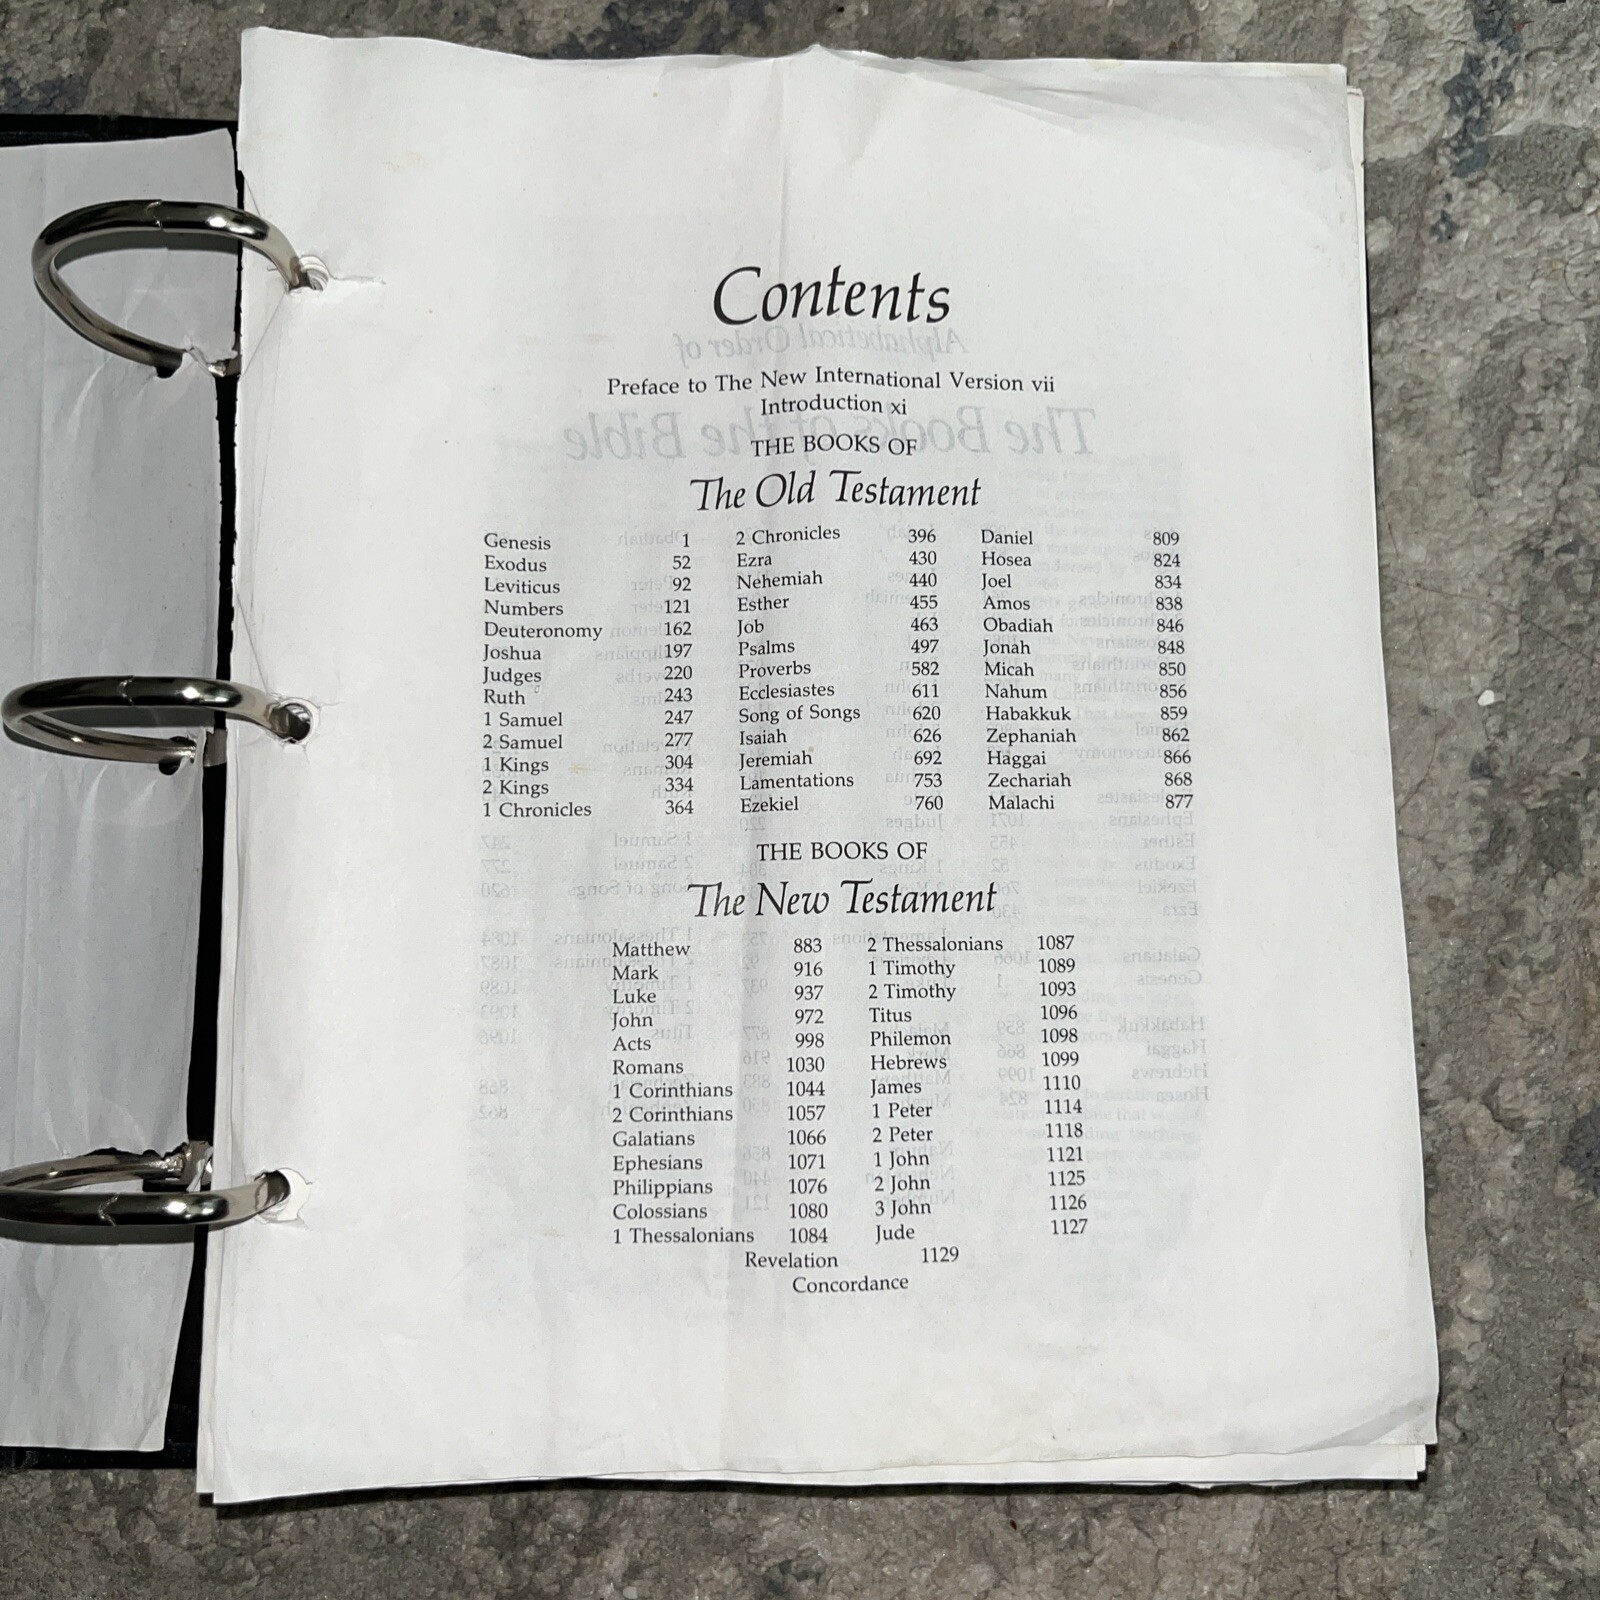 Contents
Preface to The New International Version vii
Introduction xi
THE BOOKS OF
The Old Testament
Genesis 1
Exodus 52
Leviticus 92
Numbers 121
Deuteronomy 162
Joshua 197
Judges 220
Ruth 243
1 Samuel 247
2 Samuel 277
1 Kings 304
2 Kings 334
1 Chronicles 364
2 Chronicles 396
Ezra 430
Nehemiah 440
Esther 455
Job 463
Psalms 497
Proverbs 582
Ecclesiastes 611
Song of Songs 620
Isaiah 626
Jeremiah 692
Lamentations 753
Ezekiel 760
Daniel 809
Hosea 824
Joel 834
Amos 838
Obadiah 846
Jonah 848
Micah 850
Nahum 856
Habakkuk 859
Zephaniah 862
Haggai 866
Zechariah 868
Malachi 877
THE BOOKS OF
The New Testament
Matthew 883
Mark 916
Luke 937
John 972
Acts 998
Romans 1030
1 Corinthians 1044
2 Corinthians 1057
Galatians 1066
Ephesians 1071
Philippians 1076
Colossians 1080
1 Thessalonians 1084
2 Thessalonians 1087
1 Timothy 1089
2 Timothy 1093
Titus 1096
Philemon 1098
Hebrews 1099
James 1110
1 Peter 1114
2 Peter 1118
1 John 1121
2 John 1125
3 John 1126
Jude 1127
Revelation 1129
Concordance